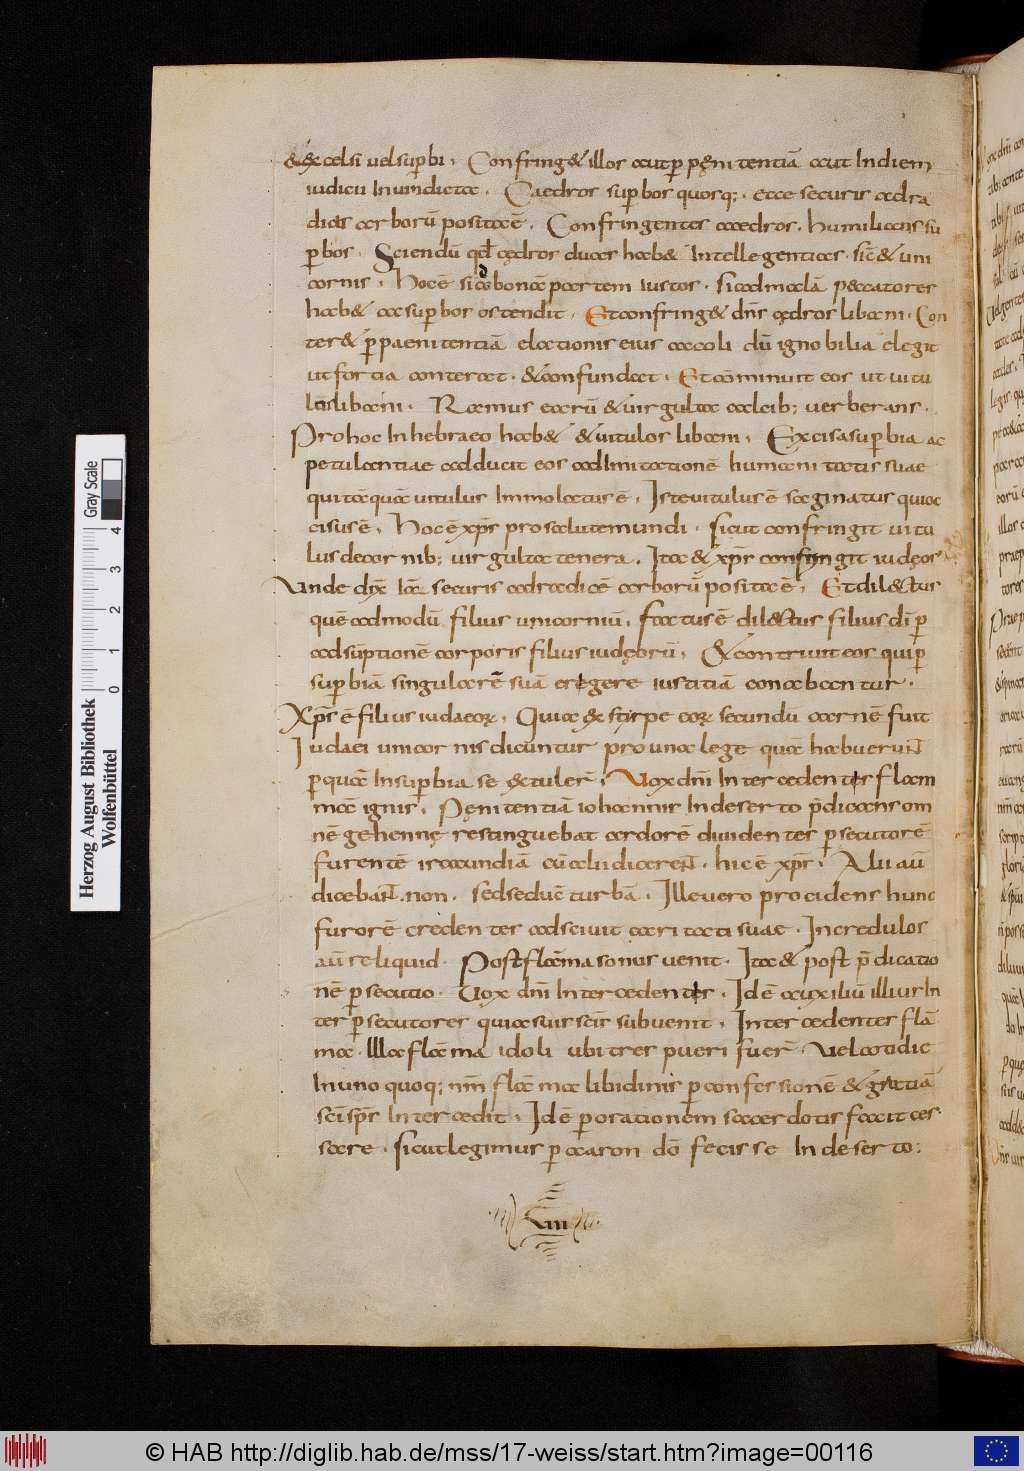 & excelsi uel supbi, Confring& illos aut p pęnitentiā aut In diem
iudicii In uindicta. Caedros supbos quosq;. ecce securis ad ra
dices arborū posita ē. Confringentes caedros. humilians su
pbos. Sciendū qđ cędros duas hab& Intellegentias. sic & uni
cornis. Hoc ē si ad bonā partem iustos. si ad malā peccatores
hab& ac supbos ostendit. Et confring& dn̄s cędros libani. Con
ter& p paenitentiā electionis eius a coeli dū ignobilia elegit
ut fortia conterat. & confundat. Et cōminuit eos ut uitu
lus libani. Ramus earū & uirgulta calcib; uerberans.
Pro hoc In hebraeo hab& & uitulos libani. Excisa supbia ac
petulantiae adducit eos ad Imitationē humani tactis suae
qui tāquā uitulus Immolatus ē. Iste uitulus ē saginatus qui oc
cisus ē. Hoc ē xp̄s pro salute mundi. sicut confringit uitu
lus de cornib; uirgulta tenera. Ita & xp̄s confringit iudęos
Unde dix̄ Iā securis ad radicē arborū posita ē, Et dilectus
quē ad modū filius unicorniū, factus ē dilectus filius dī p
adsūptionē corporis filius iudęorū, & contriuit eos qui p
supbiā singularē suā eregere iustitiā conabantur.
Xp̄s ē filius iudaeoꝝ, Quia & stirpe eoꝝ secundū carnē fuit
Iudaei unicornis dicuntur pro una lege quā habuerunt
p quā In supbia se extuler̄, Uox dn̄i Intercedentis flam
mā ignis, Pęnitentiā iohannis In deserto p̄dicans om
nē gehennę restinguebat ardorē diuidentes psecutorē
furentē iracundiā cū alii dicerent. hic ē xp̄s, Alii aū
dicebant. non. sed seducē turbā. Ille uero procidens hunc
furorē credentes adsciuit caritati suae. Incredulos
aū reliquid. Post flāma sonus uenit. Ita & post p̄dicatio
nē psecutio. Uox dn̄i Intercedentis. Id ē auxiliū illius In
ter psecutores quia suis scīs subuenit, Intercedentes flā
ma. Illa flāma idoli ubi tres pueri fuer̄. Uel cotidie
In uno quoq; nr̄m flāma libidinis p confessionē & gratiā
scī sp̄s Intercedit, Id ē p orationem sacerdotis facit ces
sare. sicut legimus p aaron dō fecisse In deserto:
XIII
Herzog August Bibliothek
Wolfenbüttel
Gray Scale
0 1 2 3 4
© HAB http://diglib.hab.de/mss/17-weiss/start.htm?image=00116